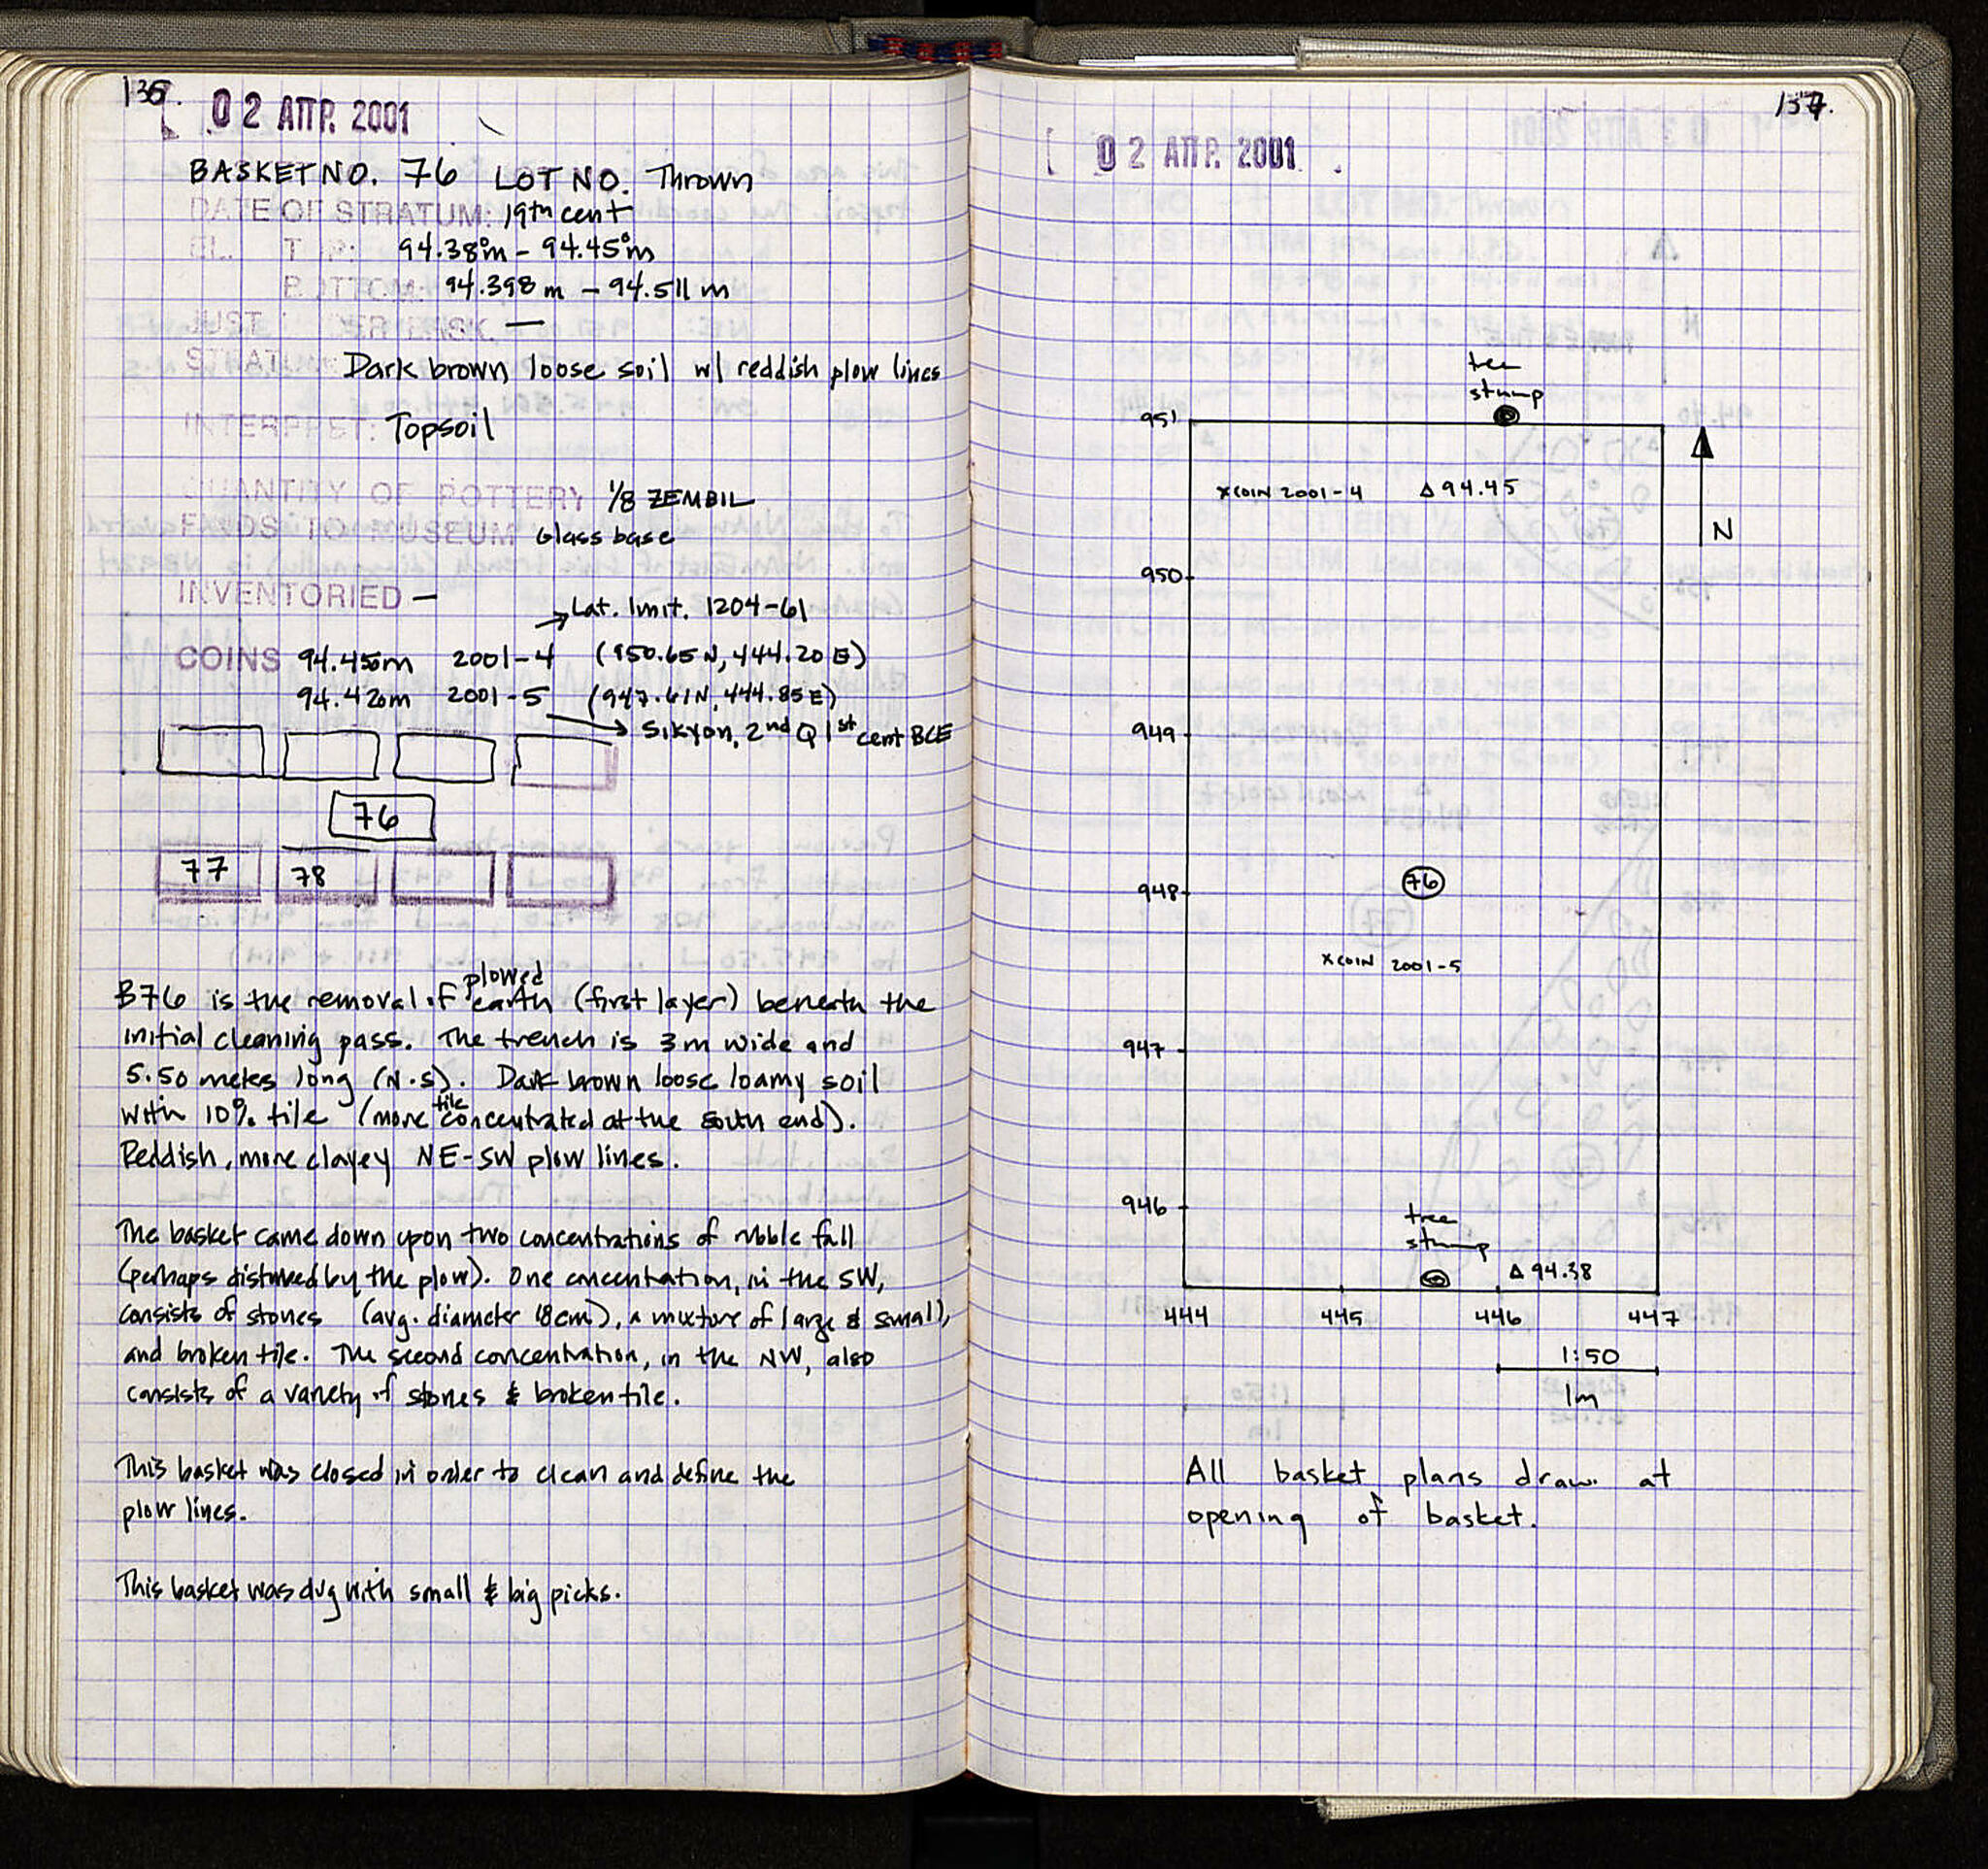 136.
02 ΑΠΡ. 2001
BASKET NO. 76 LOT NO. Thrown
DATE OF STRATUM: 19th cent
EL. T P: 94.38m - 94.45m
BOTTOM: 94.398m - 94.511m
JUST : ER BASK. —
STRATUM Dark brown loose soil w/ reddish plow lines
INTERPRET: Topsoil
QUANTITY OF POTTERY 1/8 ZEMBIL
FINDS TO MUSEUM Glass base
INVENTORIED —
→ Lat. Imit. 1204-61
COINS 94.450m 2001-4 (950.65 N, 444.20 E)
94.420m 2001-5 (947.61N, 444.85E)
→ Sikyon, 2nd Q 1st cent BCE
76
77 78
plowed
B76 is the removal of earth (first layer) beneath the
initial cleaning pass. The trench is 3m wide and
5.50 meters long (N-S). Dark brown loose loamy soil
tile
with 10% tile (more concentrated at the south end).
Reddish, more clayey NE-SW plow lines.
The basket came down upon two concentrations of rubble fall
(perhaps disturbed by the plow). One concentration, in the SW,
consists of stones (avg. diameter 18cm), a mixture of large & small),
and broken tile. The second concentration, in the NW, also
consists of a variety of stones & broken tile.
This basket was closed in order to clean and define the
plow lines.
This basket was dug with small & big picks.
137.
02 ΑΠΡ. 2001
tree
stump
951
x COIN 2001-4 Δ 94.45
N
950
949
948
76
x COIN 2001-5
947
946
tree
stump
Δ 94.38
444 445 446 447
1:50
1m
All basket plans draw at
opening of basket.